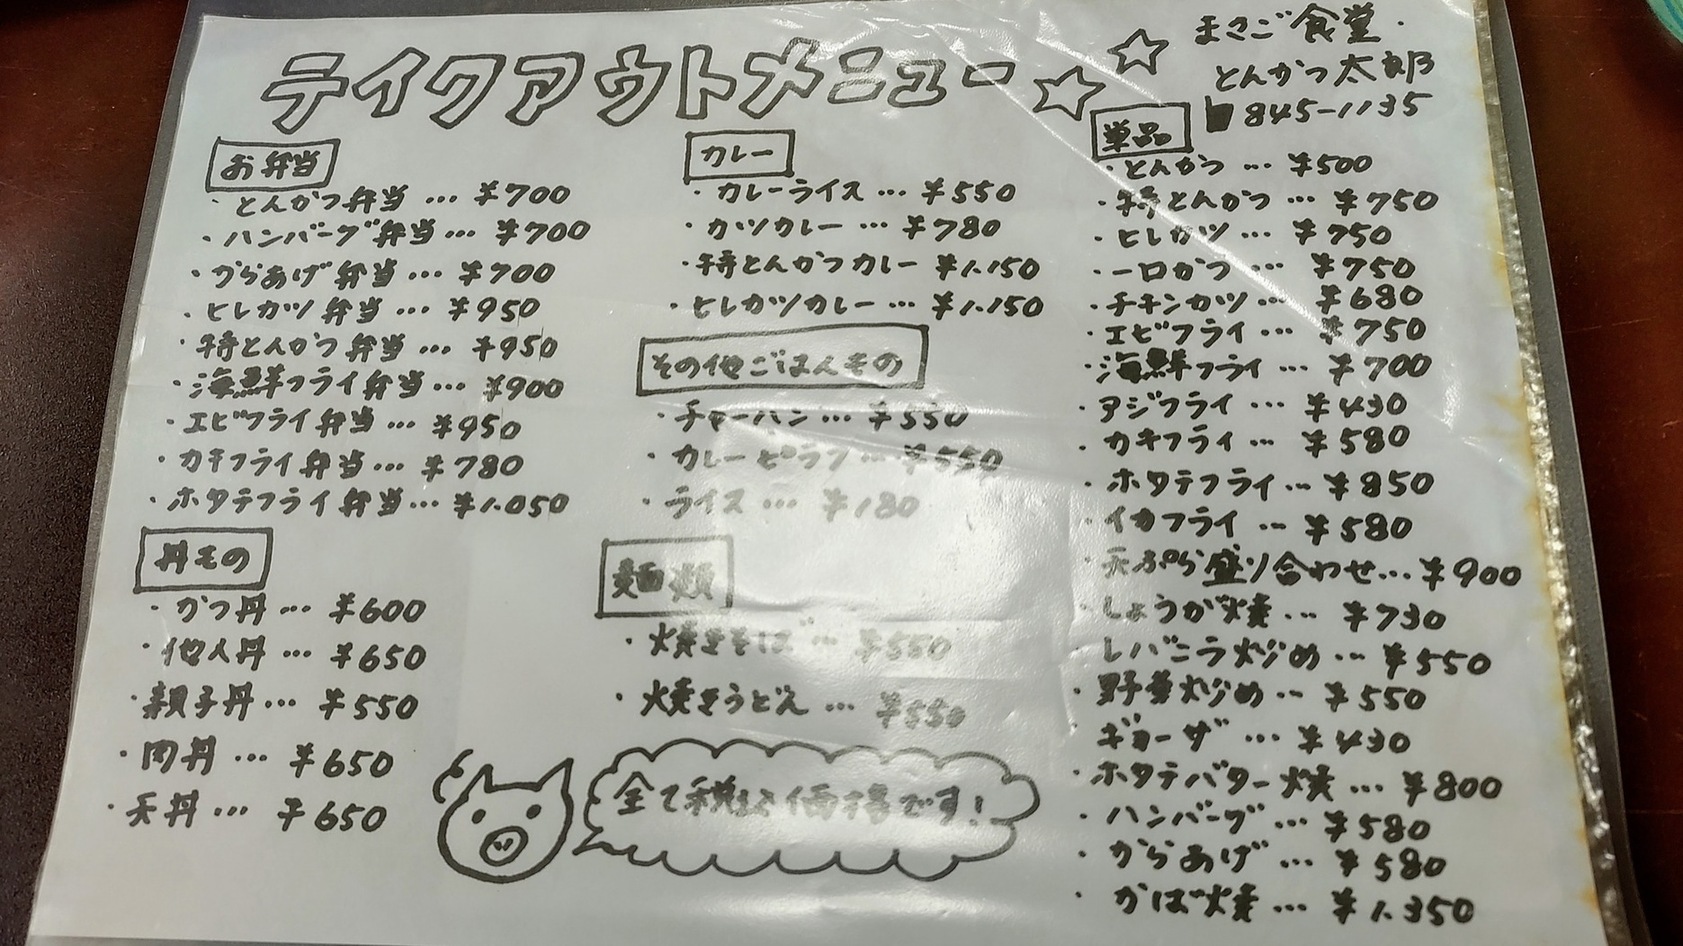 テイクアウトメニュー☆☆
まさご食堂
とんかつ太郎
845-1135
お弁当
・とんかつ弁当…¥700
・ハンバーグ弁当…¥700
・からあげ弁当…¥700
・ヒレカツ弁当…¥950
・特とんかつ弁当…¥950
・海鮮フライ弁当…¥900
・エビフライ弁当…¥950
・カキフライ弁当…¥780
・ホタテフライ弁当…¥1.050
丼もの
・かつ丼…¥600
・他人丼…¥650
・親子丼…¥550
・肉丼…¥650
・天丼…¥650
カレー
・カレーライス…¥550
・カツカレー…¥780
・特とんかつカレー ¥1.150
・ヒレカツカレー…¥1.150
その他ごはんもの
・チャーハン…¥550
・カレーピラフ…¥550
・ライス…¥180
麺類
・焼きそば…¥550
・焼きうどん…¥550
全て税込価格です!
単品
・とんかつ…¥500
・特とんかつ…¥750
・ヒレカツ…¥750
・一口かつ…¥750
・チキンカツ…¥680
・エビフライ…¥750
・海鮮フライ…¥700
・アジフライ…¥430
・カキフライ…¥580
・ホタテフライ…¥850
・イカフライ…¥580
・天ぷら盛り合わせ…¥900
・しょうが焼…¥730
・レバニラ炒め…¥550
・野菜炒め…¥550
・ギョーザ…¥430
・ホタテバター焼…¥800
・ハンバーグ…¥580
・からあげ…¥580
・かば焼…¥1.350